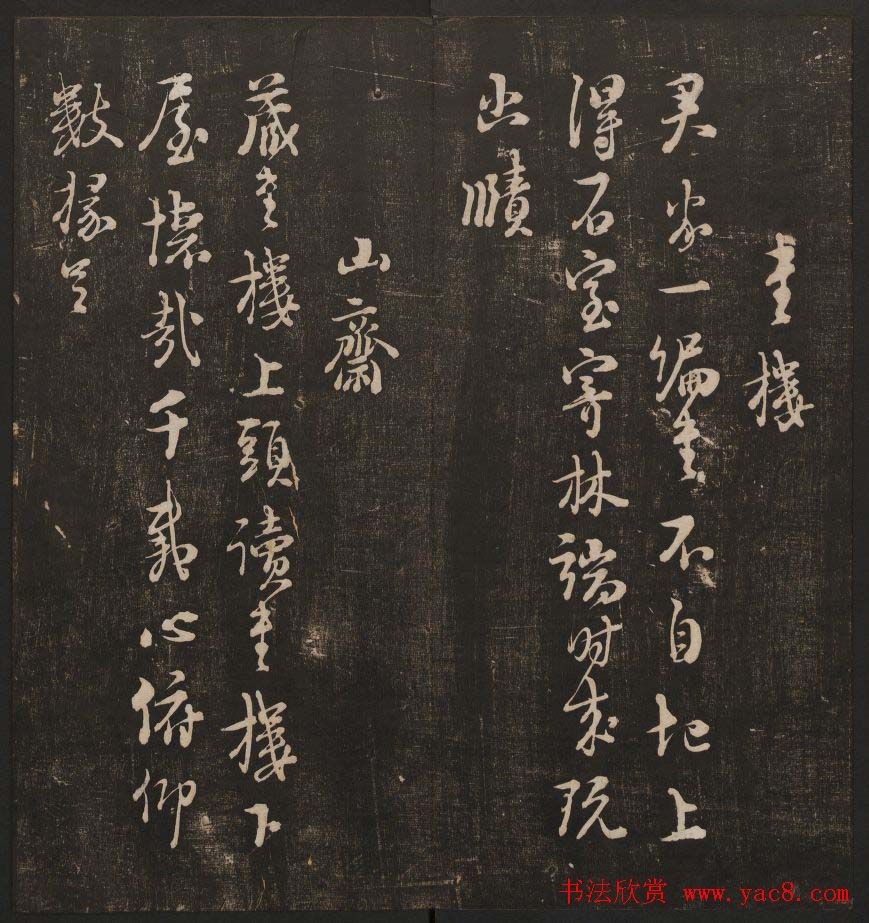 書樓
君家一編書不自圯上
得石室寄林端時來玩
幽賾
山齋
藏書樓上頭讀書樓下
屋懷哉千載心俯仰
數椽足
书法欣赏 www.yac8.com